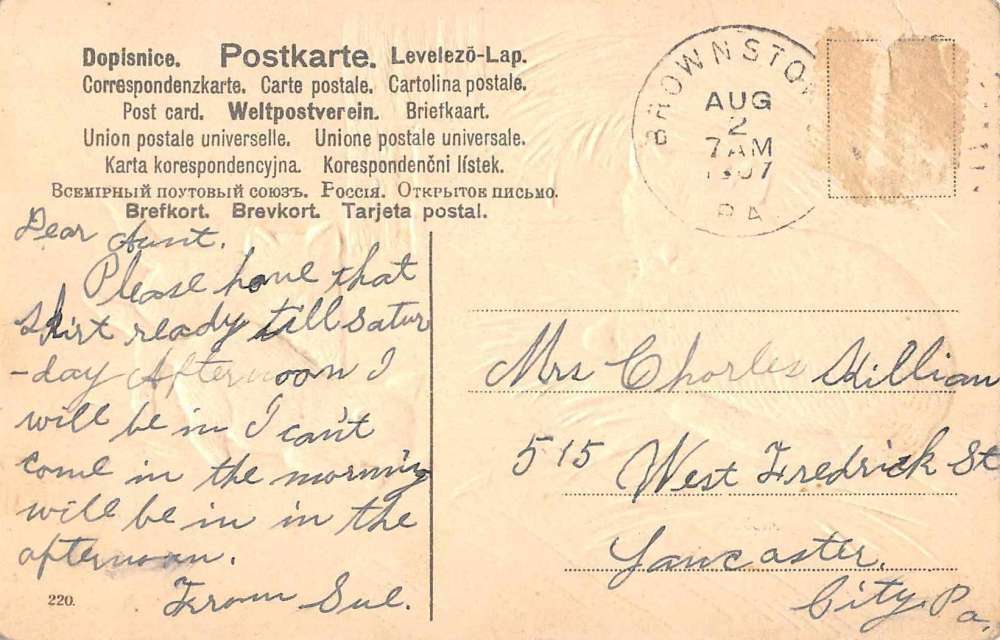 Dopisnice. Postkarte. Levelező-Lap.
Correspondenzkarte. Carte postale. Cartolina postale.
Post card. Weltpostverein. Briefkaart.
Union postale universelle. Unione postale universale.
Karta korespondencyjna. Korespondenční lístek.
Всемірный поутовый союзъ. Россія. Открытое письмо.
Brefkort. Brevkort. Tarjeta postal.
BROWNSTO
AUG
2
7AM
1907
PA
Dear Aunt.
Please have that
shirt ready till satur
-day Afternoon I
will be in I can't
come in the morning
will be in in the
afternoon.
From Sue.
220.
Mrs Charles Hillian
515 West Fredrick St
Lancaster.
City. Pa.